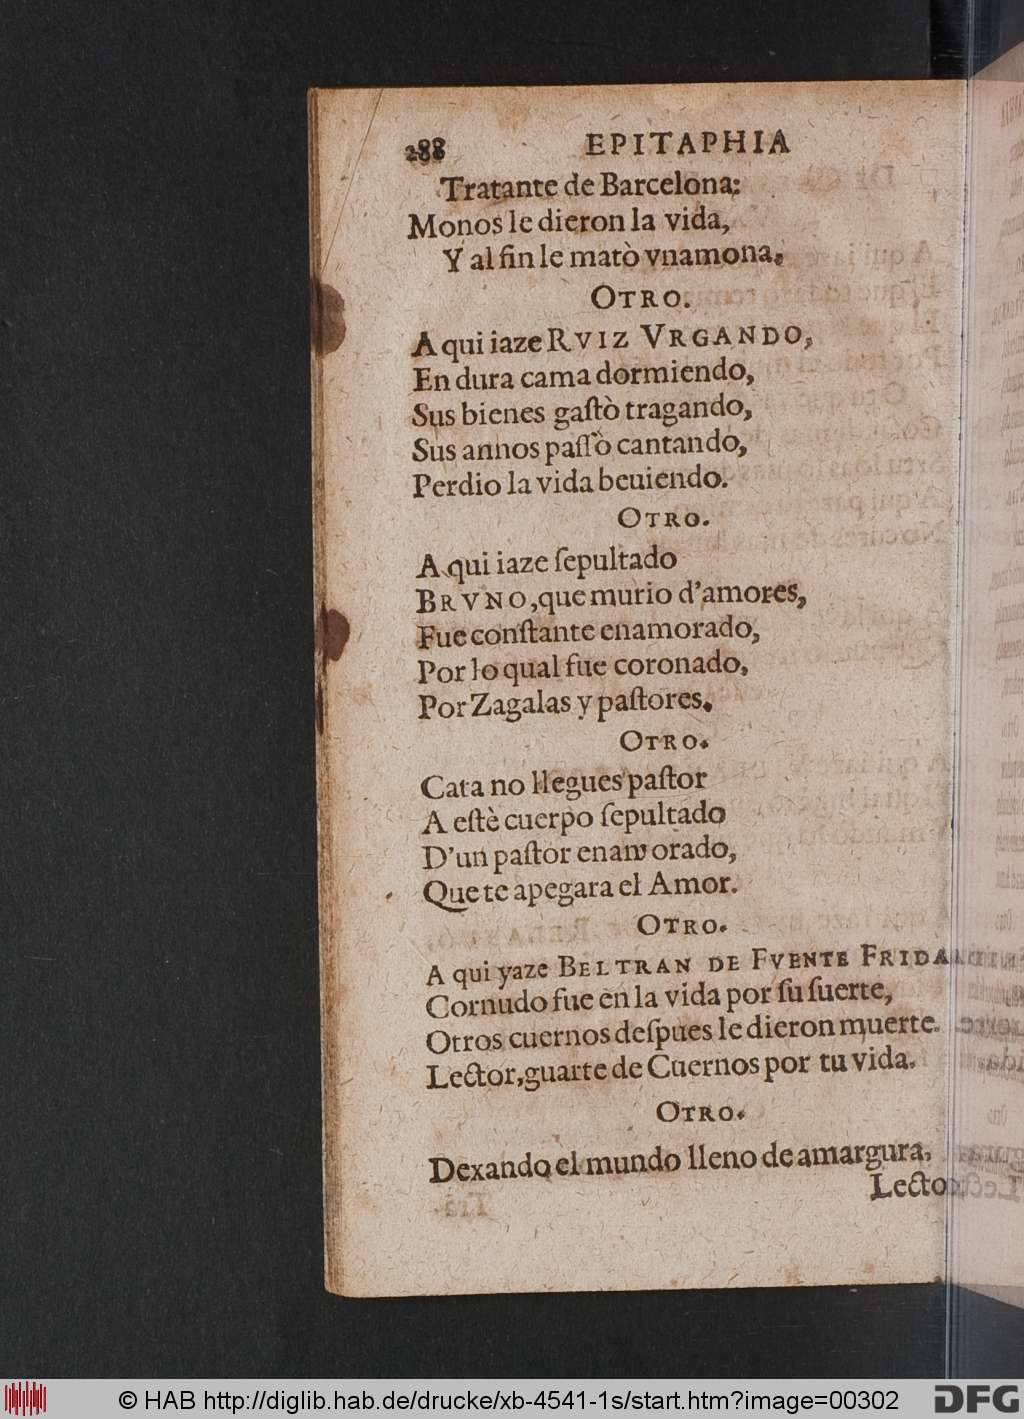 288 EPITAPHIA
Tratante de Barcelona:
Monos le dieron la vida,
Y al fin le matò vna mona.
OTRO.
A qui iaze RVIZ VRGANDO,
En dura cama dormiendo,
Sus bienes gaſtò tragando,
Sus annos paſſò cantando,
Perdio la vida beuiendo.
OTRO.
A qui iaze ſepultado
BRVNO, que murio d'amores,
Fue conſtante enamorado,
Por lo qual fue coronado,
Por Zagalas y paſtores.
OTRO.
Cata no llegues paſtor
A eſtè cuerpo ſepultado
D'un paſtor enamorado,
Que te apegara el Amor.
OTRO.
A qui yaze BELTRAN DE FVENTE FRIDA
Cornudo fue en la vida por ſu ſuerte,
Otros cuernos deſpues le dieron muerte.
Lector, guarte de Cuernos por tu vida.
OTRO.
Dexando el mundo lleno de amargura,
Lector
© HAB http://diglib.hab.de/drucke/xb-4541-1s/start.htm?image=00302
DFG